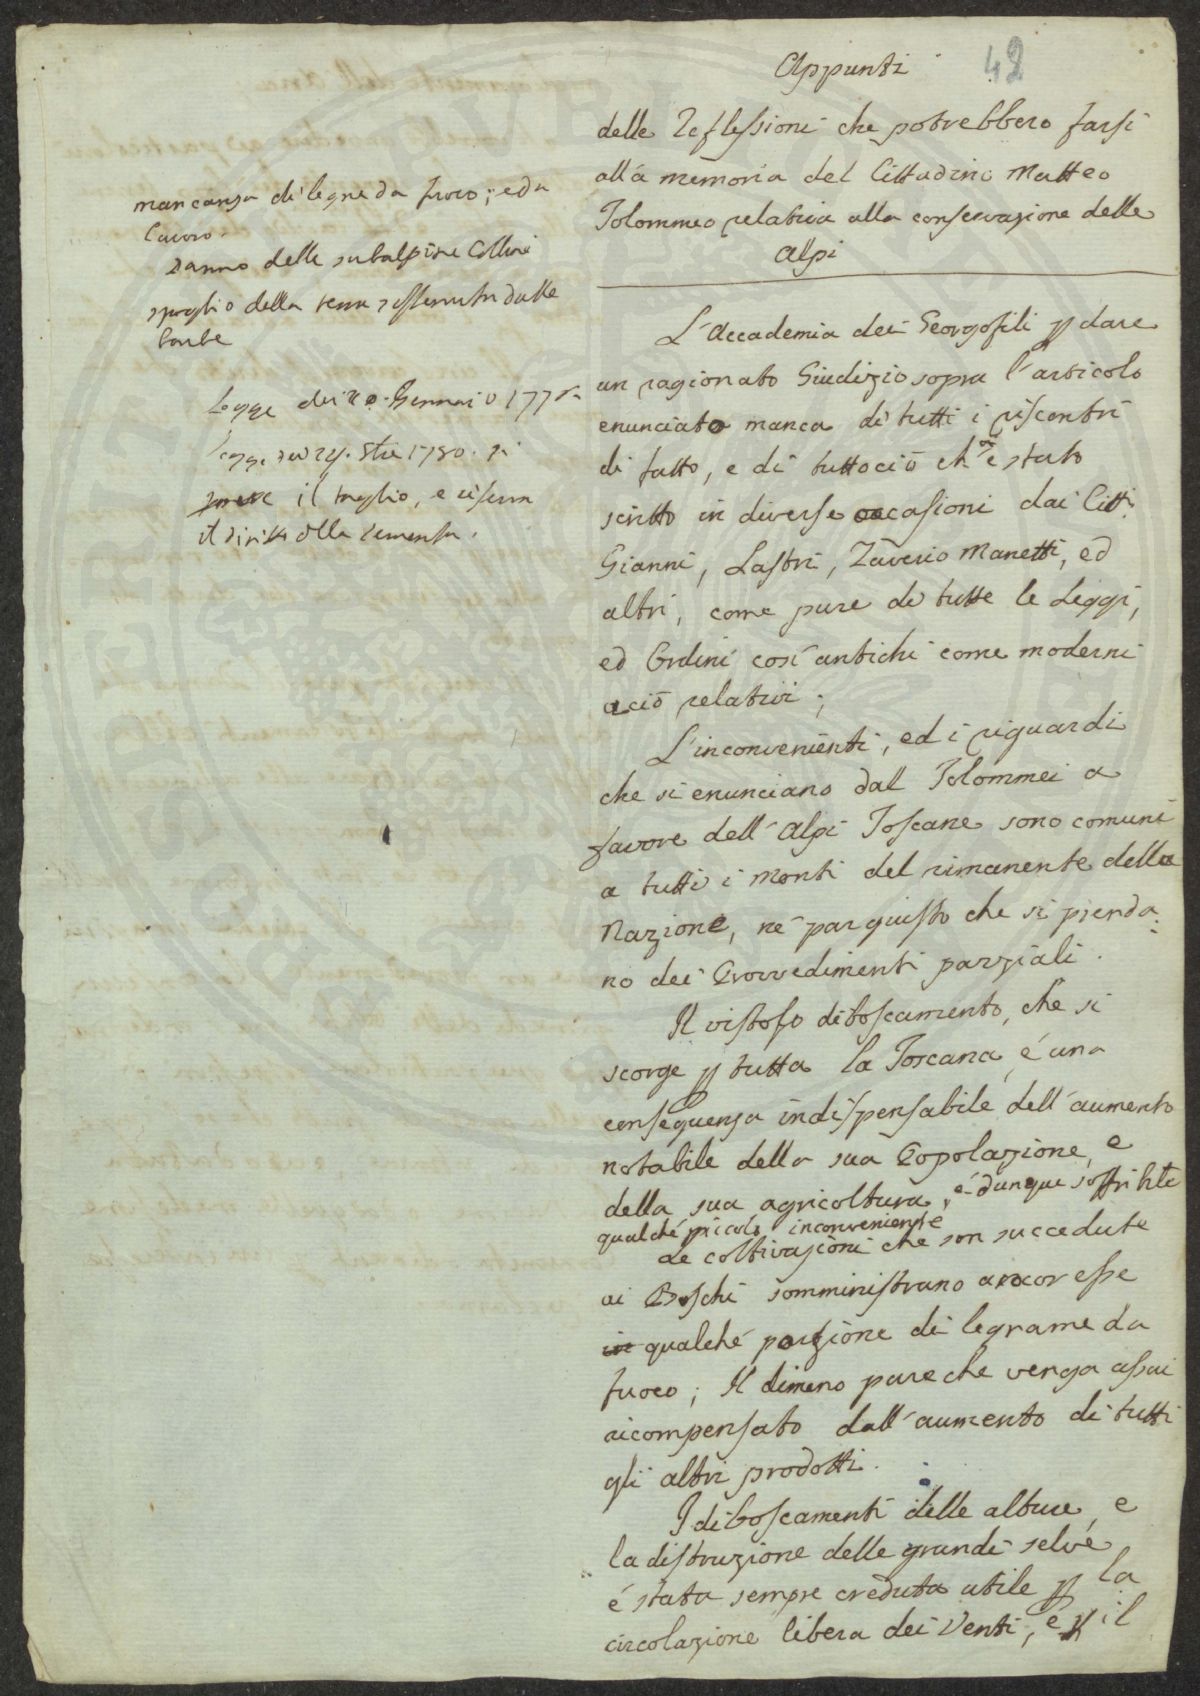 42
Appunti
delle Reflessioni che potrebbero farsi
alla memoria del Cittadino Matteo
Tolommeo relativa alla conservazione delle
Alpi
mancanza di legne da fuoco; e da
lavoro.
Danno delle subalpine Colline
spoglio della terra sostenuta dalle
barbe
Legge dei Gennaio 177
il taglio, e riserva
il diritto alla sementa.
L'Accademia dei Georgofili p dare
un ragionato Giudizio sopra l'articolo
enunciato manca di tutti i riscontri
di fatto, e di tuttociò ch è stato
scritto in diverse occasioni dai Citti
Gianni, Lastri, Zaverio Manetti, ed
altri, come pure di tutte le Leggi,
ed Ordini così antichi come moderni
aciò relativi;
L'inconvenienti, ed i riguardi
che si enunciano dal Tolommei a
favore dell'Alpi Toscane sono comuni
a tutti i Monti del rimanente della
Nazione, né par giusto che si prenda
no dei Provvedimenti parziali.
Il vistoso diboscamento, che si
scorge p tutta la Toscana, è una
conseguenza indispensabile dell'aumento
notabile della sua Popolazione, e
della sua agricoltura, è dunque soffribile
qualche piccolo inconveniente
Le coltivazioni che son succedute
ai Boschi somministrano ancor esse
in qualche porzione di legname da
fuoco; Il dimeno pare che venga assai
ricompensato dall'aumento di tutti
gli altri prodotti.
I diboscamenti delle alture, e
la distruzione delle grandi selve
è stata sempre creduta utile p la
circolazione libera dei Venti, e p il